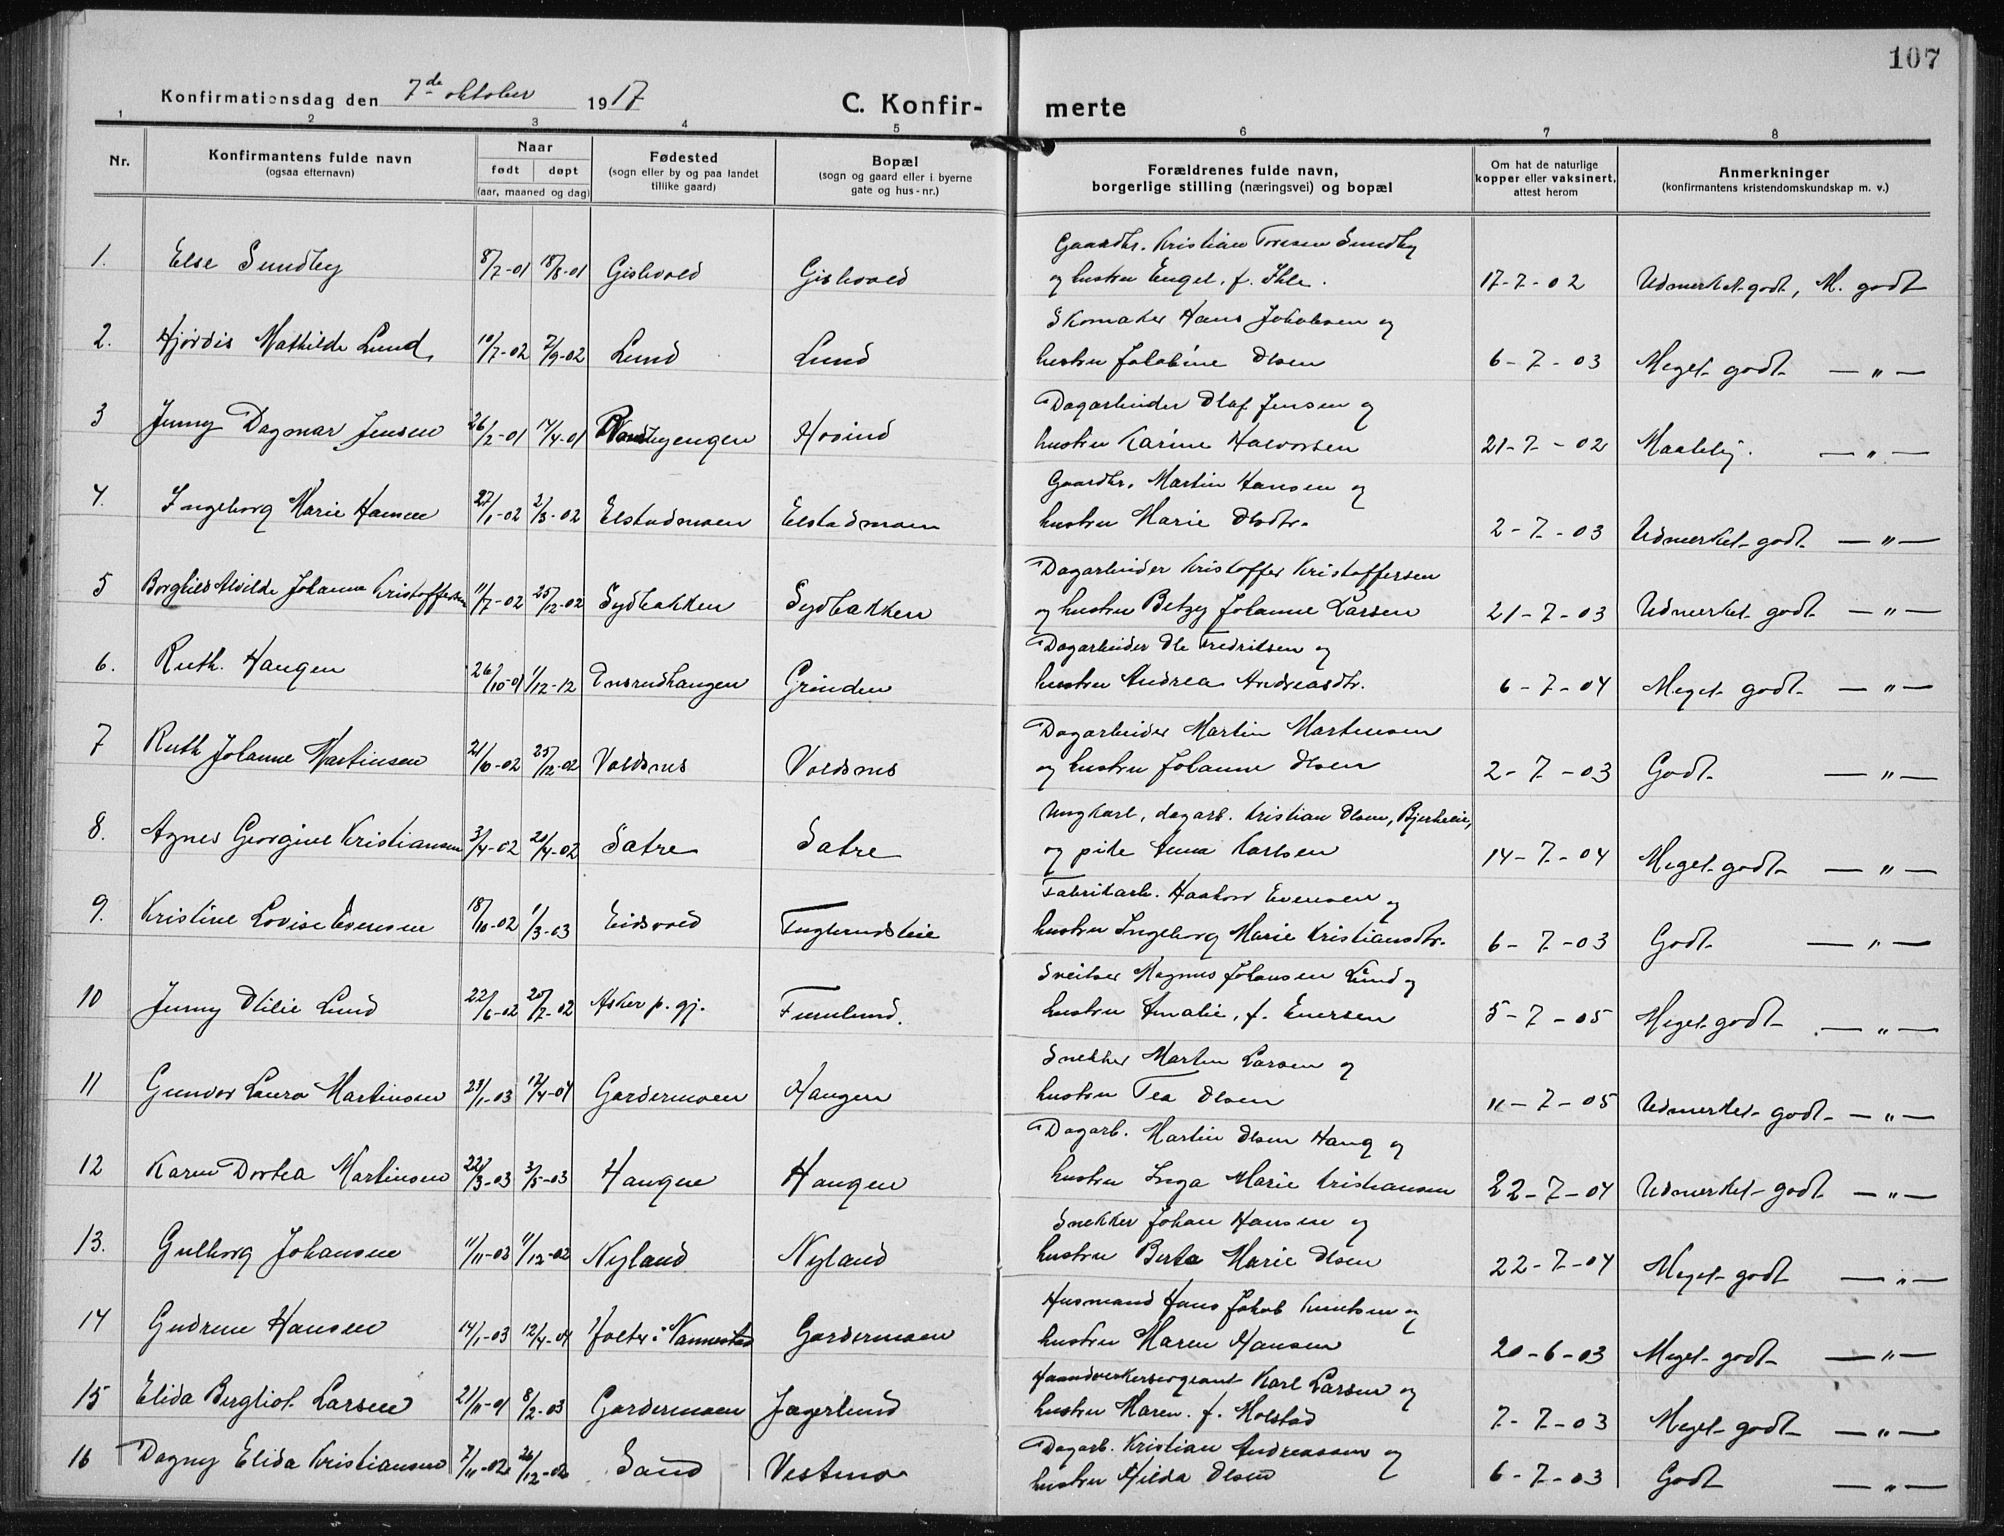 107
Konfirmationsdag den 7de oktober 1917
C. Konfir- merte
1 2 3 4 5 6 7 8
Nr.
Konfirmantens fulde navn
(ogsaa efternavn)
Naar
født døpt
(aar, maaned og dag)
Fødested
(sogn eller by og paa landet
tillike gaard)
Bopæl
(sogn og gaard eller i byerne
gate og hus-nr.)
Forældrenes fulde navn,
borgerlige stilling (næringsvei) og bopæl
Om hat de naturlige
kopper eller vaksinert,
attest herom
Anmerkninger
(konfirmantens kristendomskundskap m. v.)
Gaardbr. Kristian Toresen Sundby
1. Else Sundby 8/7-01 18/8-01 Gislvold Gislvold og hustru Engel, f. Ihle. 17-7-02 Udmerket godt, M. godt
Skomaker Hans Jakobsen og
2. Hjørdis Mathilde Lund 10/7-02 7/9-02 Lund Lund hustru Jakobine Olsen 6-7-03 Meget godt —"—
Dagarbeider Olaf Jensen og
3 Jenny Dagmar Jensen 26/2-01 14/4-01 Hovind hustru Karine Halvorsen 21-7-02 —"—
Gaardbr. Martin Hansen og
4. Ingeborg Marie Hansen 27/1-02 2/3-02 Elstadmoen Elstadmoen hustru Marie Olsdtr. 2-7-03 Udmerket godt —"—
Dagarbeider Kristoffer Kristoffersen
5 Borghild Alvilde Johanne Kristoffersen 11/7-02 25/12-02 Sydbakken Sydbakken og hustru Betzy Johanne Larsen 21-7-03 Udmerket godt —"—
Dagarbeider Ole Fredriksen og
6. Ruth Haugen 26/10-01 1/12-12 Onsrudhaugen Grinden hustru Andrea Andreasdtr. 6-7-04 Meget godt —"—
Dagarbeider Martin Martinsen
7 Ruth Johanne Martinsen 21/10-02 25/12-02 Voldsnes Voldsnes og hustru Johanne Olsen 2-7-03 Godt —"—
Ungkarl, dagarb. Kristian Olsen, Bjerkeeie,
8. Agnes Georgine Kristiansen 3/4-02 20/4-02 Sætre Sætre og pike Anna Karlsen 14-7-04 Meget godt —"—
Fabrikarb. Haakon Evensen og
9. Kristine Lovise Evensen 18/10-02 1/3-03 Eidsvold Fuglerudseie hustru Ingeborg Marie Kristiansdtr. 6-7-03 Godt —"—
Sveitser Magnus Johansen Lund og
10 Jenny Otilie Lund 22/6-02 20/7-02 Asker p. gj. Furulund. hustru Amalie, f. Eversen 5-7-05 Meget godt —"—
Snekker Martin Larsen og
11 Gunvor Laura Martinsen 23/1-03 12/4-04 Gardermoen Haugen hustru Tea Olsen 11-7-05 Udmerket godt —"—
Dagarb. Martin Olsen Haug og
12 Karen Dortea Martinsen 22/3-03 3/5-03 Haugen Haugen hustru Inga Marie Kristiansen 22-7-04 Udmerket godt —"—
Snekker Johan Hansen og
13. Gulborg Johansen 11/11-02 11/12-02 Nyland Nyland hustru Berte Marie Olsen 22-7-04 Meget godt —"—
Husmand Hans Jakob Knutsen og
14 Gudrun Hansen 14/1-03 12/4-04 Holter i Nannestad Gardermoen hustru Maren Hansen 20-6-03 Meget godt —"—
Haandverkersergeant Karl Larsen og
15 Elida Bergliot Larsen 21/11-01 8/2-03 Gardermoen Jægerlund hustru Maren f. Holstad 7-7-03 Meget godt —"—
Dagarb. Kristian Andreassen og
16 Dagny Elida Kristiansen 7/11-02 26/12-02 Sand Vestmo hustru Hilda Olsen 6-7-03 Godt —"—